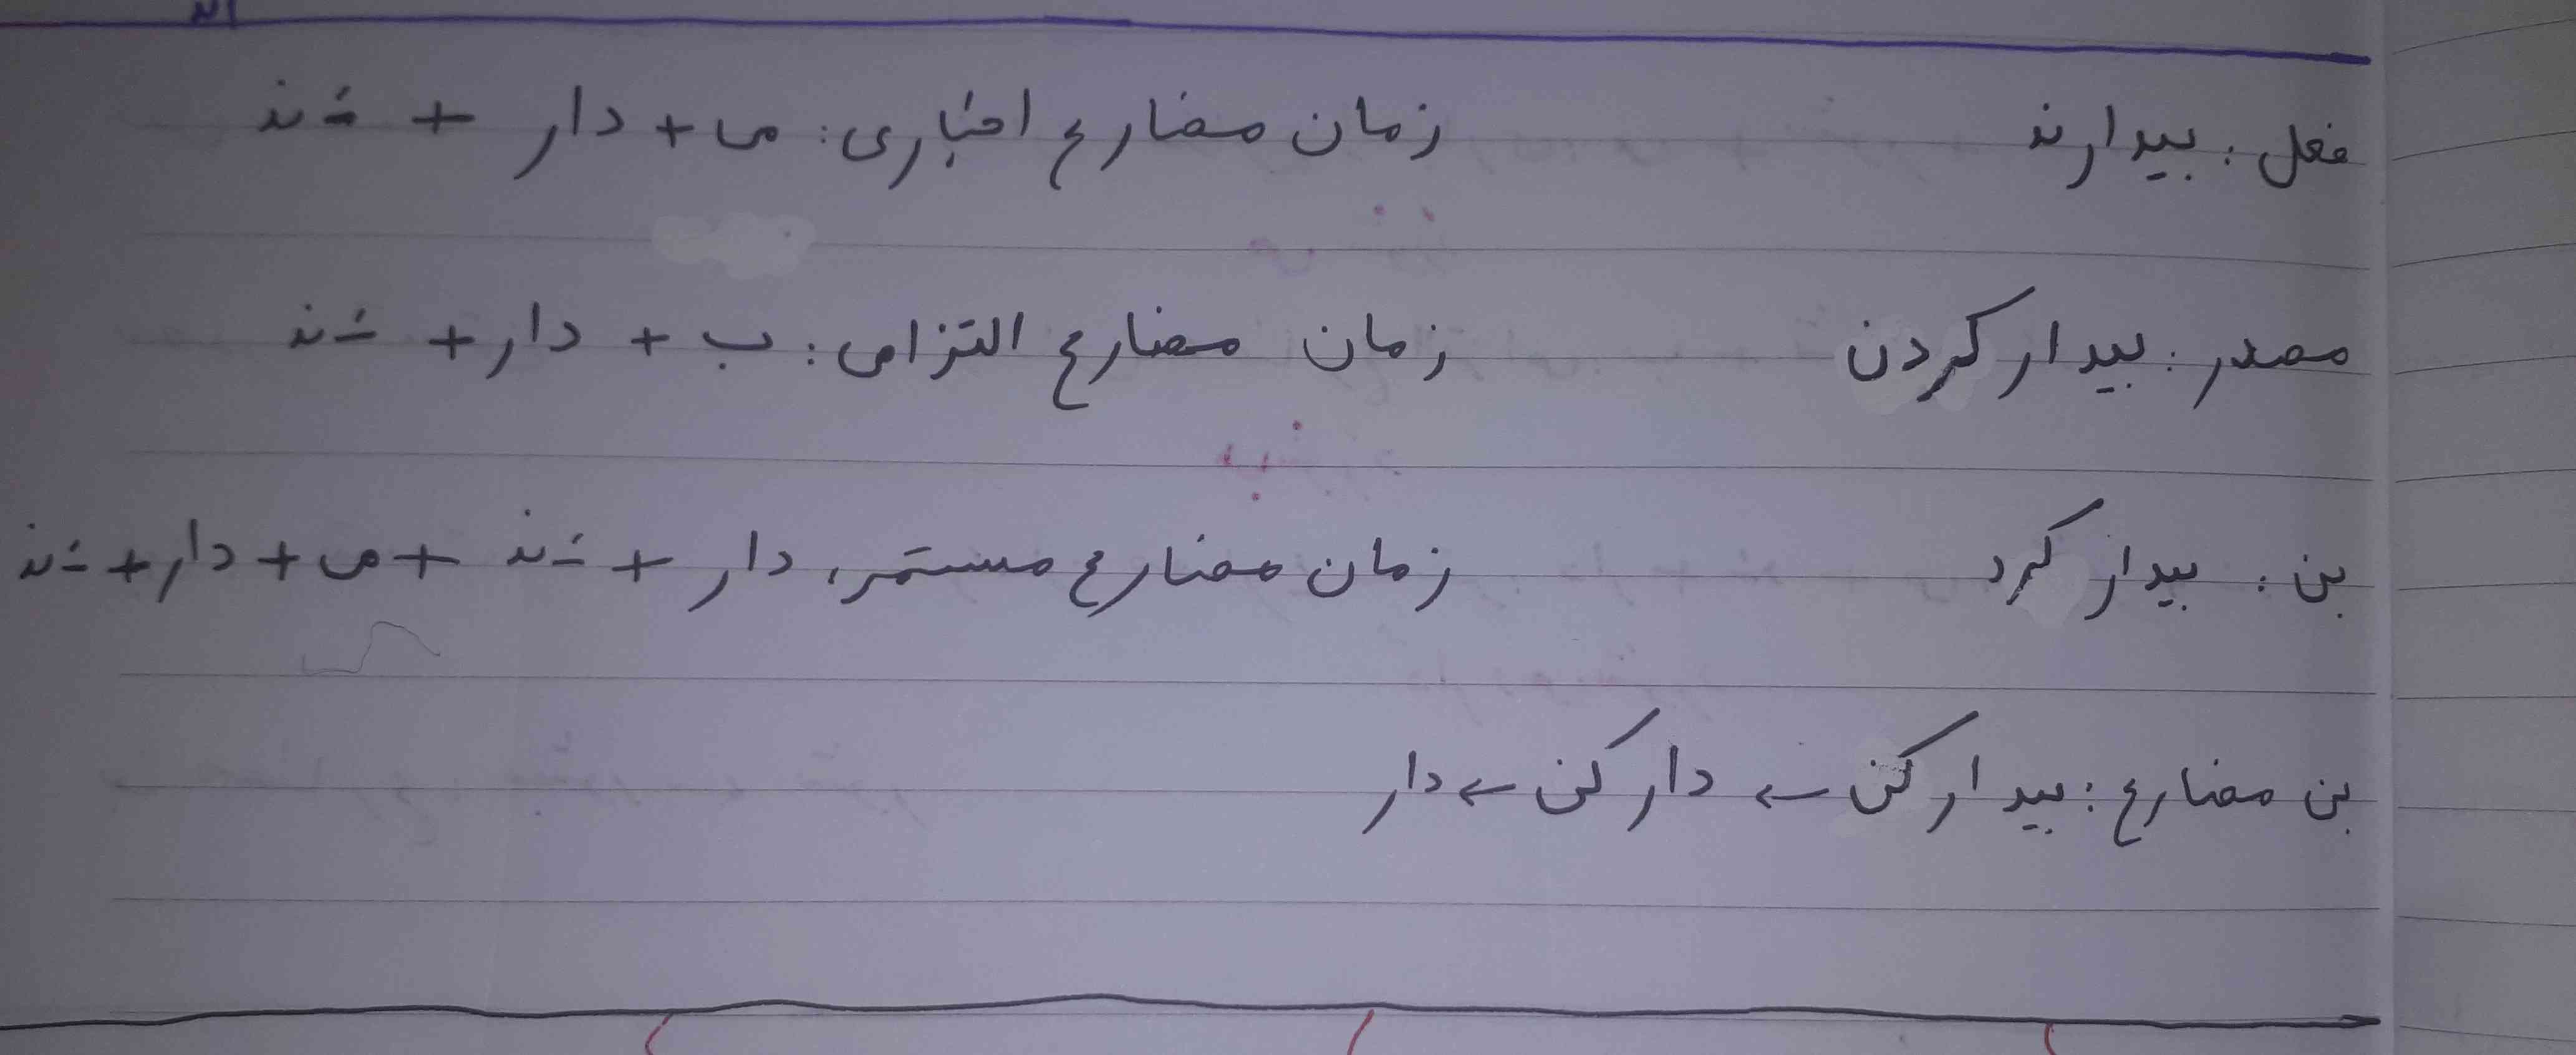 فعل: بیدارند زمان مضارع اخباری: می + دار + ـَ ند
مصدر: بیدار کردن زمان مضارع التزامی: ب + دار + ـَ ند
بن: بیدار کرد زمان مضارع مستمر: دار + ـَ ند + می + دار + ـَ ند
بن مضارع: بیدار کن ← دار کن ← دار